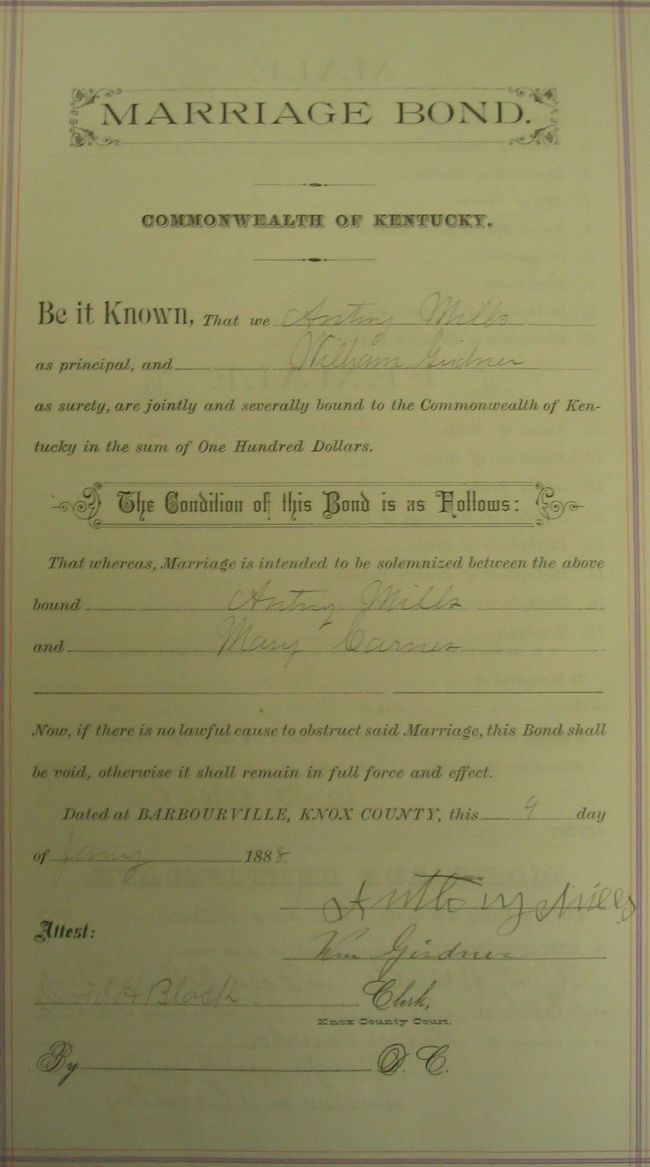 MARRIAGE BOND.
COMMONWEALTH OF KENTUCKY.
Be it Known, That we Antny Mills
as principal, and William Girdner
as surety, are jointly and severally bound to the Commonwealth of Ken-
tucky in the sum of One Hundred Dollars.
The Condition of this Bond is as Follows:
That whereas, Marriage is intended to be solemnized between the above
bound Antny Mills
and Mary Carnes
Now, if there is no lawful cause to obstruct said Marriage, this Bond shall
be void, otherwise it shall remain in full force and effect.
Dated at BARBOURVILLE, KNOX COUNTY, this 9 day
of Jany 1888
Anthony Mills
Attest:
Wm Girdner
David H Black Clerk,
Knox County Court.
By D. C.